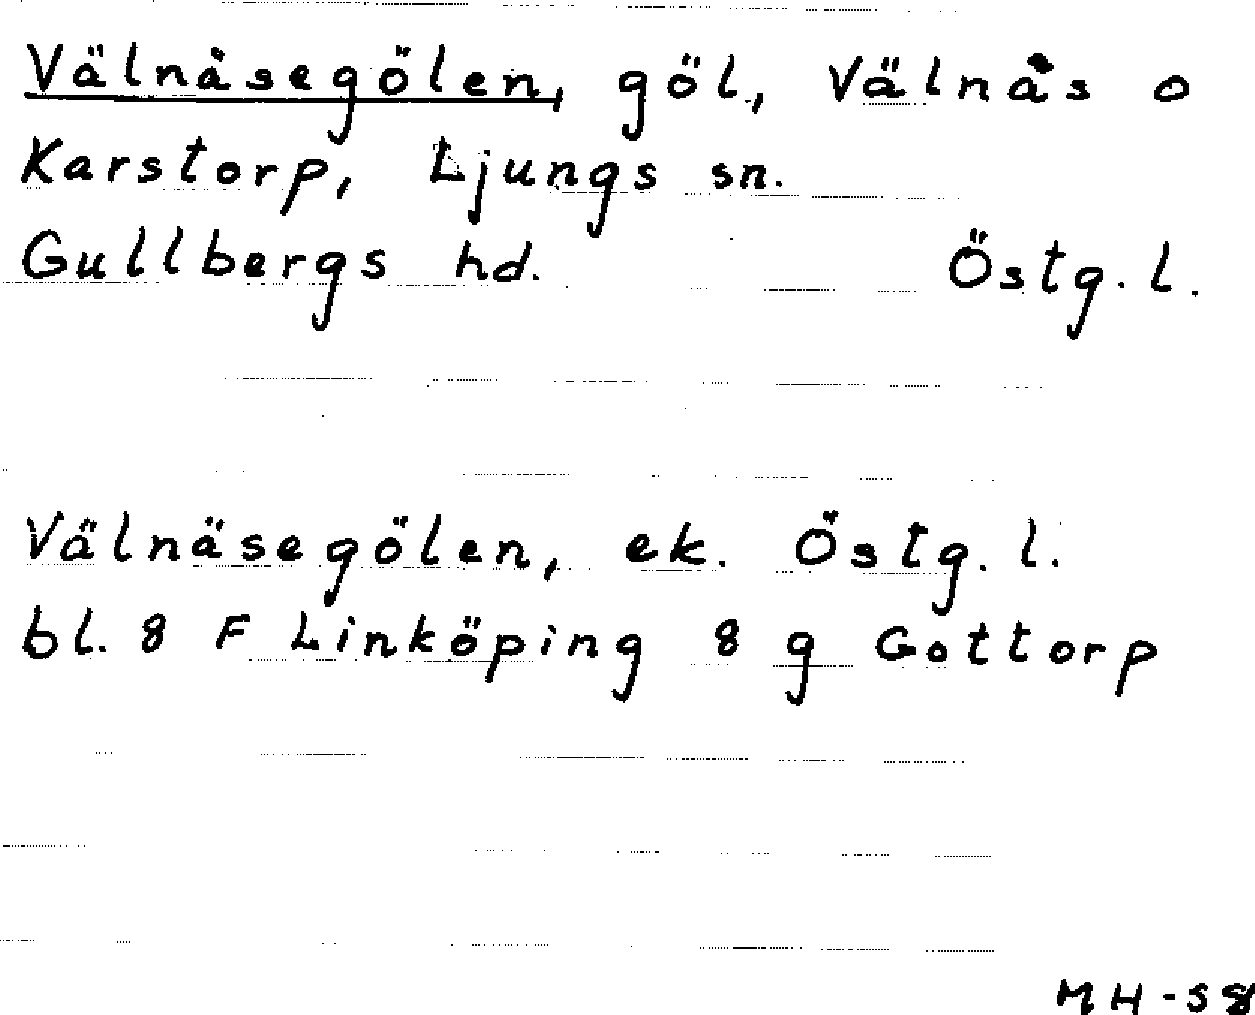 Välnäsegölen, göl, Välnäs o
Karstorp, Ljungs sn.
Gullbergs hd. Östg. l.
Välnäsegölen, ek. Östg. l.
bl. 8 F Linköping 8 g Gottorp
MH-58